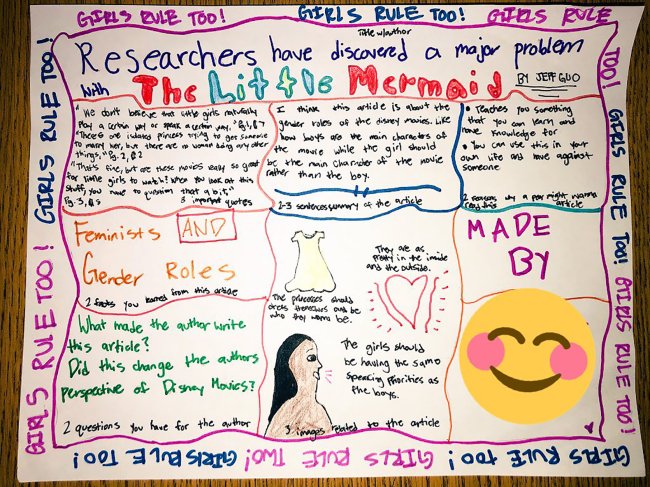 GIRLS RULE TOO! GIRLS RULE TOO! GIRLS RULE TOO!
Title w/author
Researchers have discovered a major problem
with The Little Mermaid BY JEFF GUO
"We don't believe that little girls naturally
play a certain way or speak a certain way." Pg.1,
"There's not isolated princess trying to get someone
to marry her, but there are no women doing any other
things." Pg. 2, Q2
"That's fine, but are these movies really so great
for little girls to watch? When you look at this
stuff, you have to question that a bit."
Pg. 3, 3 important quotes
I think this article is about the
gender roles of the disney movies. Like
how boys are the main characters of
the movie while the girl should
be the main character of the movie
rather than the boy.
2-3 sentence summary of the article
• Teaches you something
that you can learn and
have knowledge for
• You can use this in your
own life and have against
someone
2 reasons why a peer might wanna
read this article
Feminists AND
Gender Roles
2 facts you learned from this article
The princesses should
dress themselves and be
who they wanna be.
They are as
pretty in the inside
and the outside.
MADE
BY
What made the author write
this article?
Did this change the authors
perspective of Disney Movies?
2 questions you have for the author
The girls should
be having the same
speaking priorities as
the boys.
3 images related to the article
GIRLS RULE TOO! GIRLS RULE TOO!
GIRLS RULE TOO! GIRLS RULE TOO!
GIRLS RULE TOO! GIRLS RULE TWO! GIRLS RULE TOO! GIRLS RULE TOO!